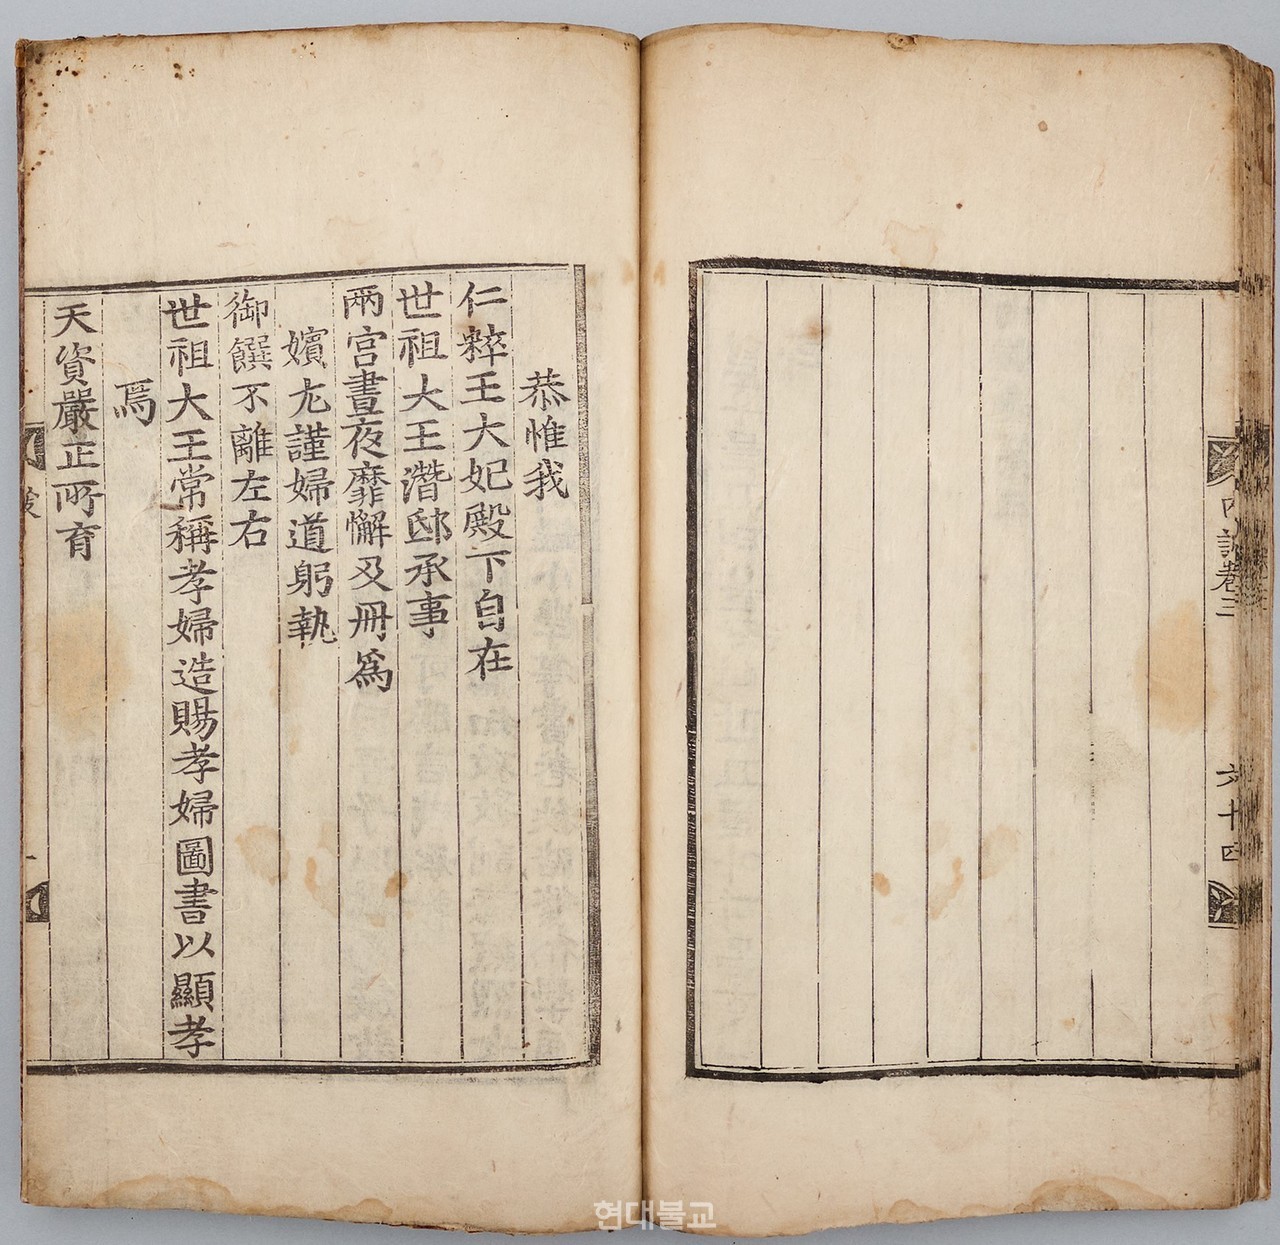 內訓卷三
六十四
恭惟我
仁粹王大妃殿下自在
世祖大王潛邸承事
兩宮晝夜靡懈及冊爲
嬪尤謹婦道躬執
御饌不離左右
世祖大王常稱孝婦造賜孝婦圖書以顯孝
焉
天資嚴正所育
跋
一
현대불교